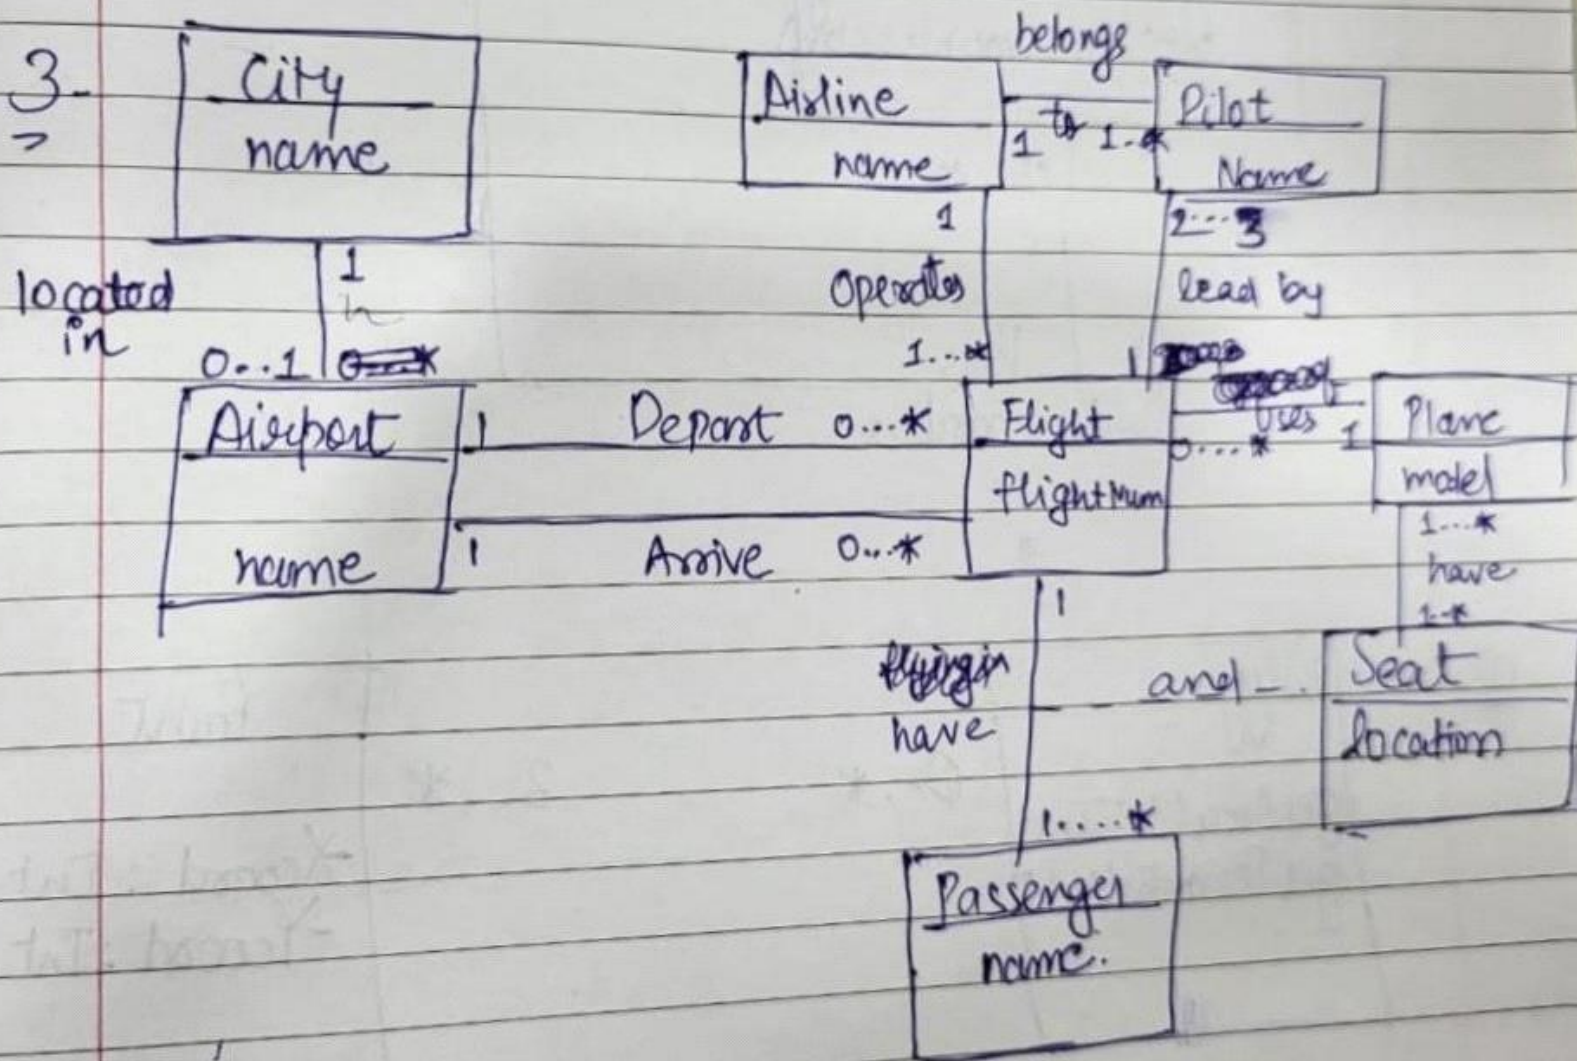 3-
City
name
located
in
1
0..1
Airport
name
1 Depart 0...*
1 Arrive 0...*
Airline
name
belongs
to
1 1..*
Pilot
Name
1
Operates
1...*
2...3
lead by
1
Flight
flightNum
uses
0....* 1
Plane
model
1...*
have
1..*
Seat
location
1
flying in
have
and
1....*
Passenger
name.